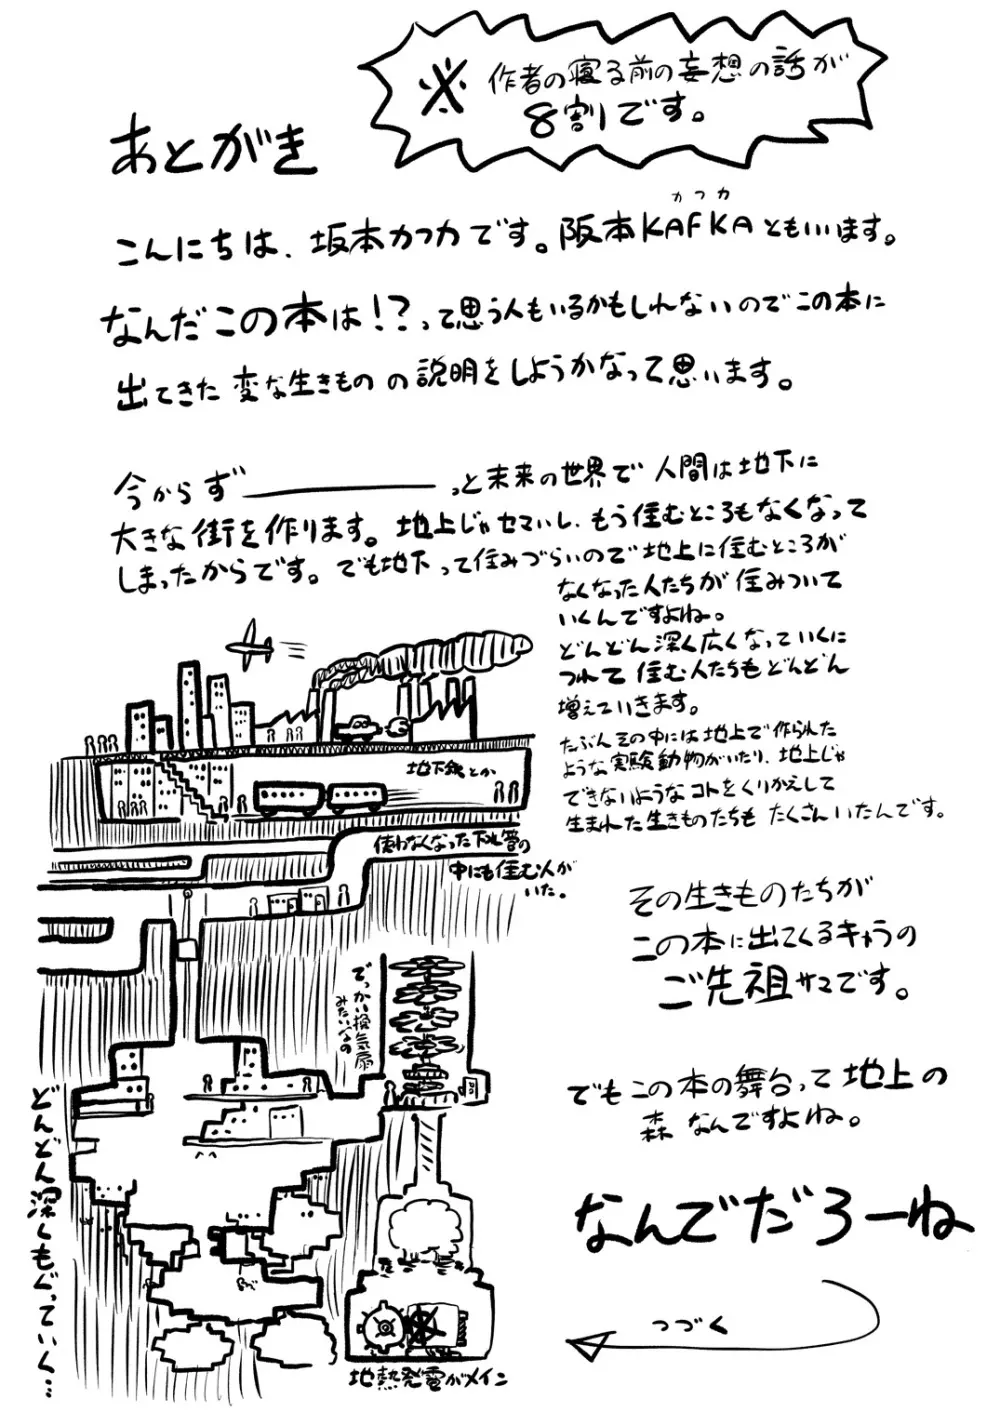 ※作者の寝る前の妄想の話が
8割です。
あとがき
こんにちは、坂本カフカです。阪本KAFKAともいいます。
カフカ
なんだこの本は!?って思う人もいるかもしれないのでこの本に
出てきた変な生きものの説明をしようかなって思います。
今からず――っと未来の世界で人間は地下に
大きな街を作ります。地上じゃせまいし、もう住むところもなくなって
しまったからです。でも地下って住みづらいので地上に住むところが
なくなった人たちが住みついて
いくんですよね。
どんどん深く広くなっていくに
つれて住む人たちもどんどん
増えていきます。
たぶんその中には地上で作られた
ような実験動物がいたり、地上じゃ
できないようなコトをくりかえして
生まれた生きものたちもたくさんいたんです。
地下鉄とか
使わなくなった下水管の
中にも住む人が
いた。
その生きものたちが
この本に出てくるキャラの
ご先祖サマです。
でっかい換気扇
みたいなの
でもこの本の舞台って地上の
森なんですよね。
どんどん深くもぐっていく…
なんでだろーね
つづく
地熱発電がメイン